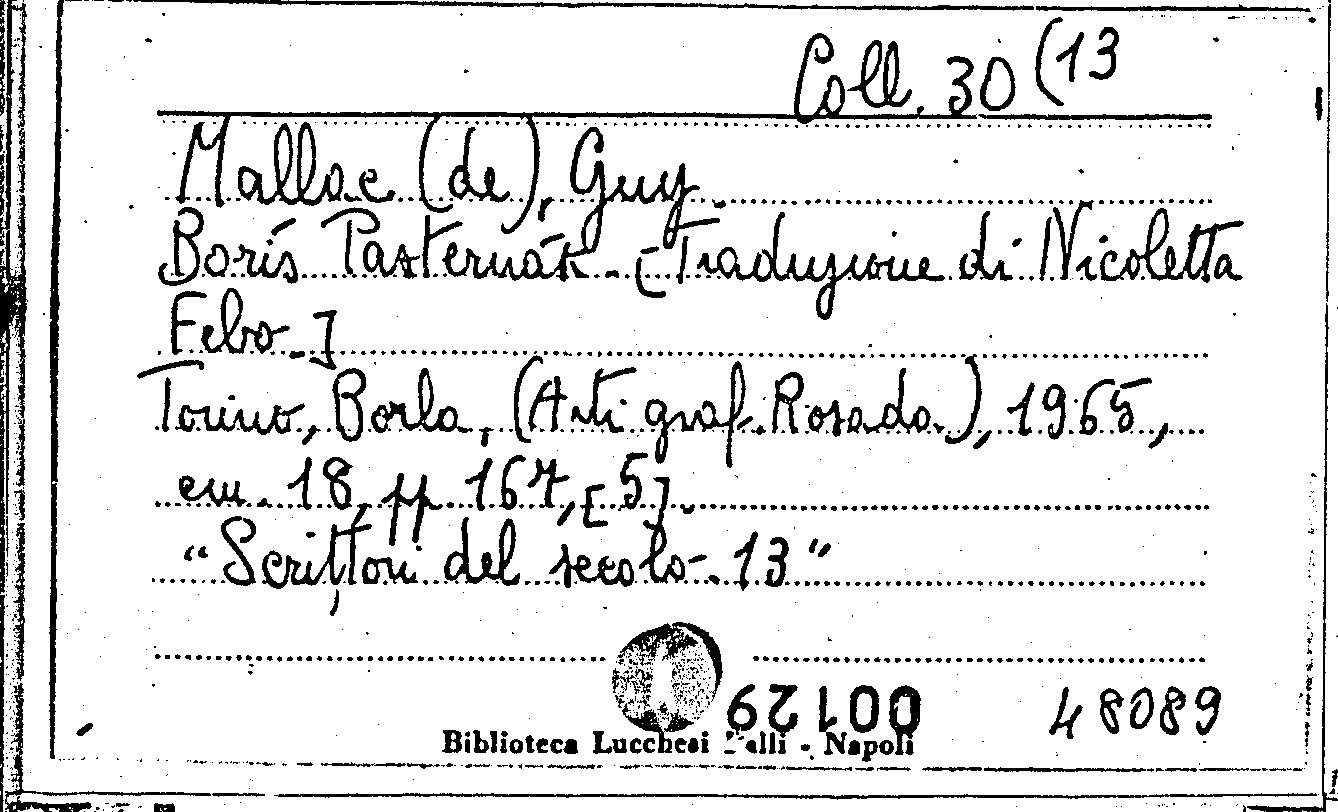 Coll. 30 (13
Mallac (de), Guy.
Boris Pasternàk. [Traduzione di Nicoletta
Febo.]
Torino, Borla, (Arti graf. Rosada.), 1965,
cm. 18, pp. 167, [5].
"Scrittori del secolo. 13"
00129
48089
Biblioteca Lucchesi Palli - Napoli